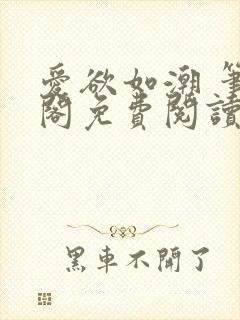 愛欲如潮 筆
閣免費閱讀
黑車不開了